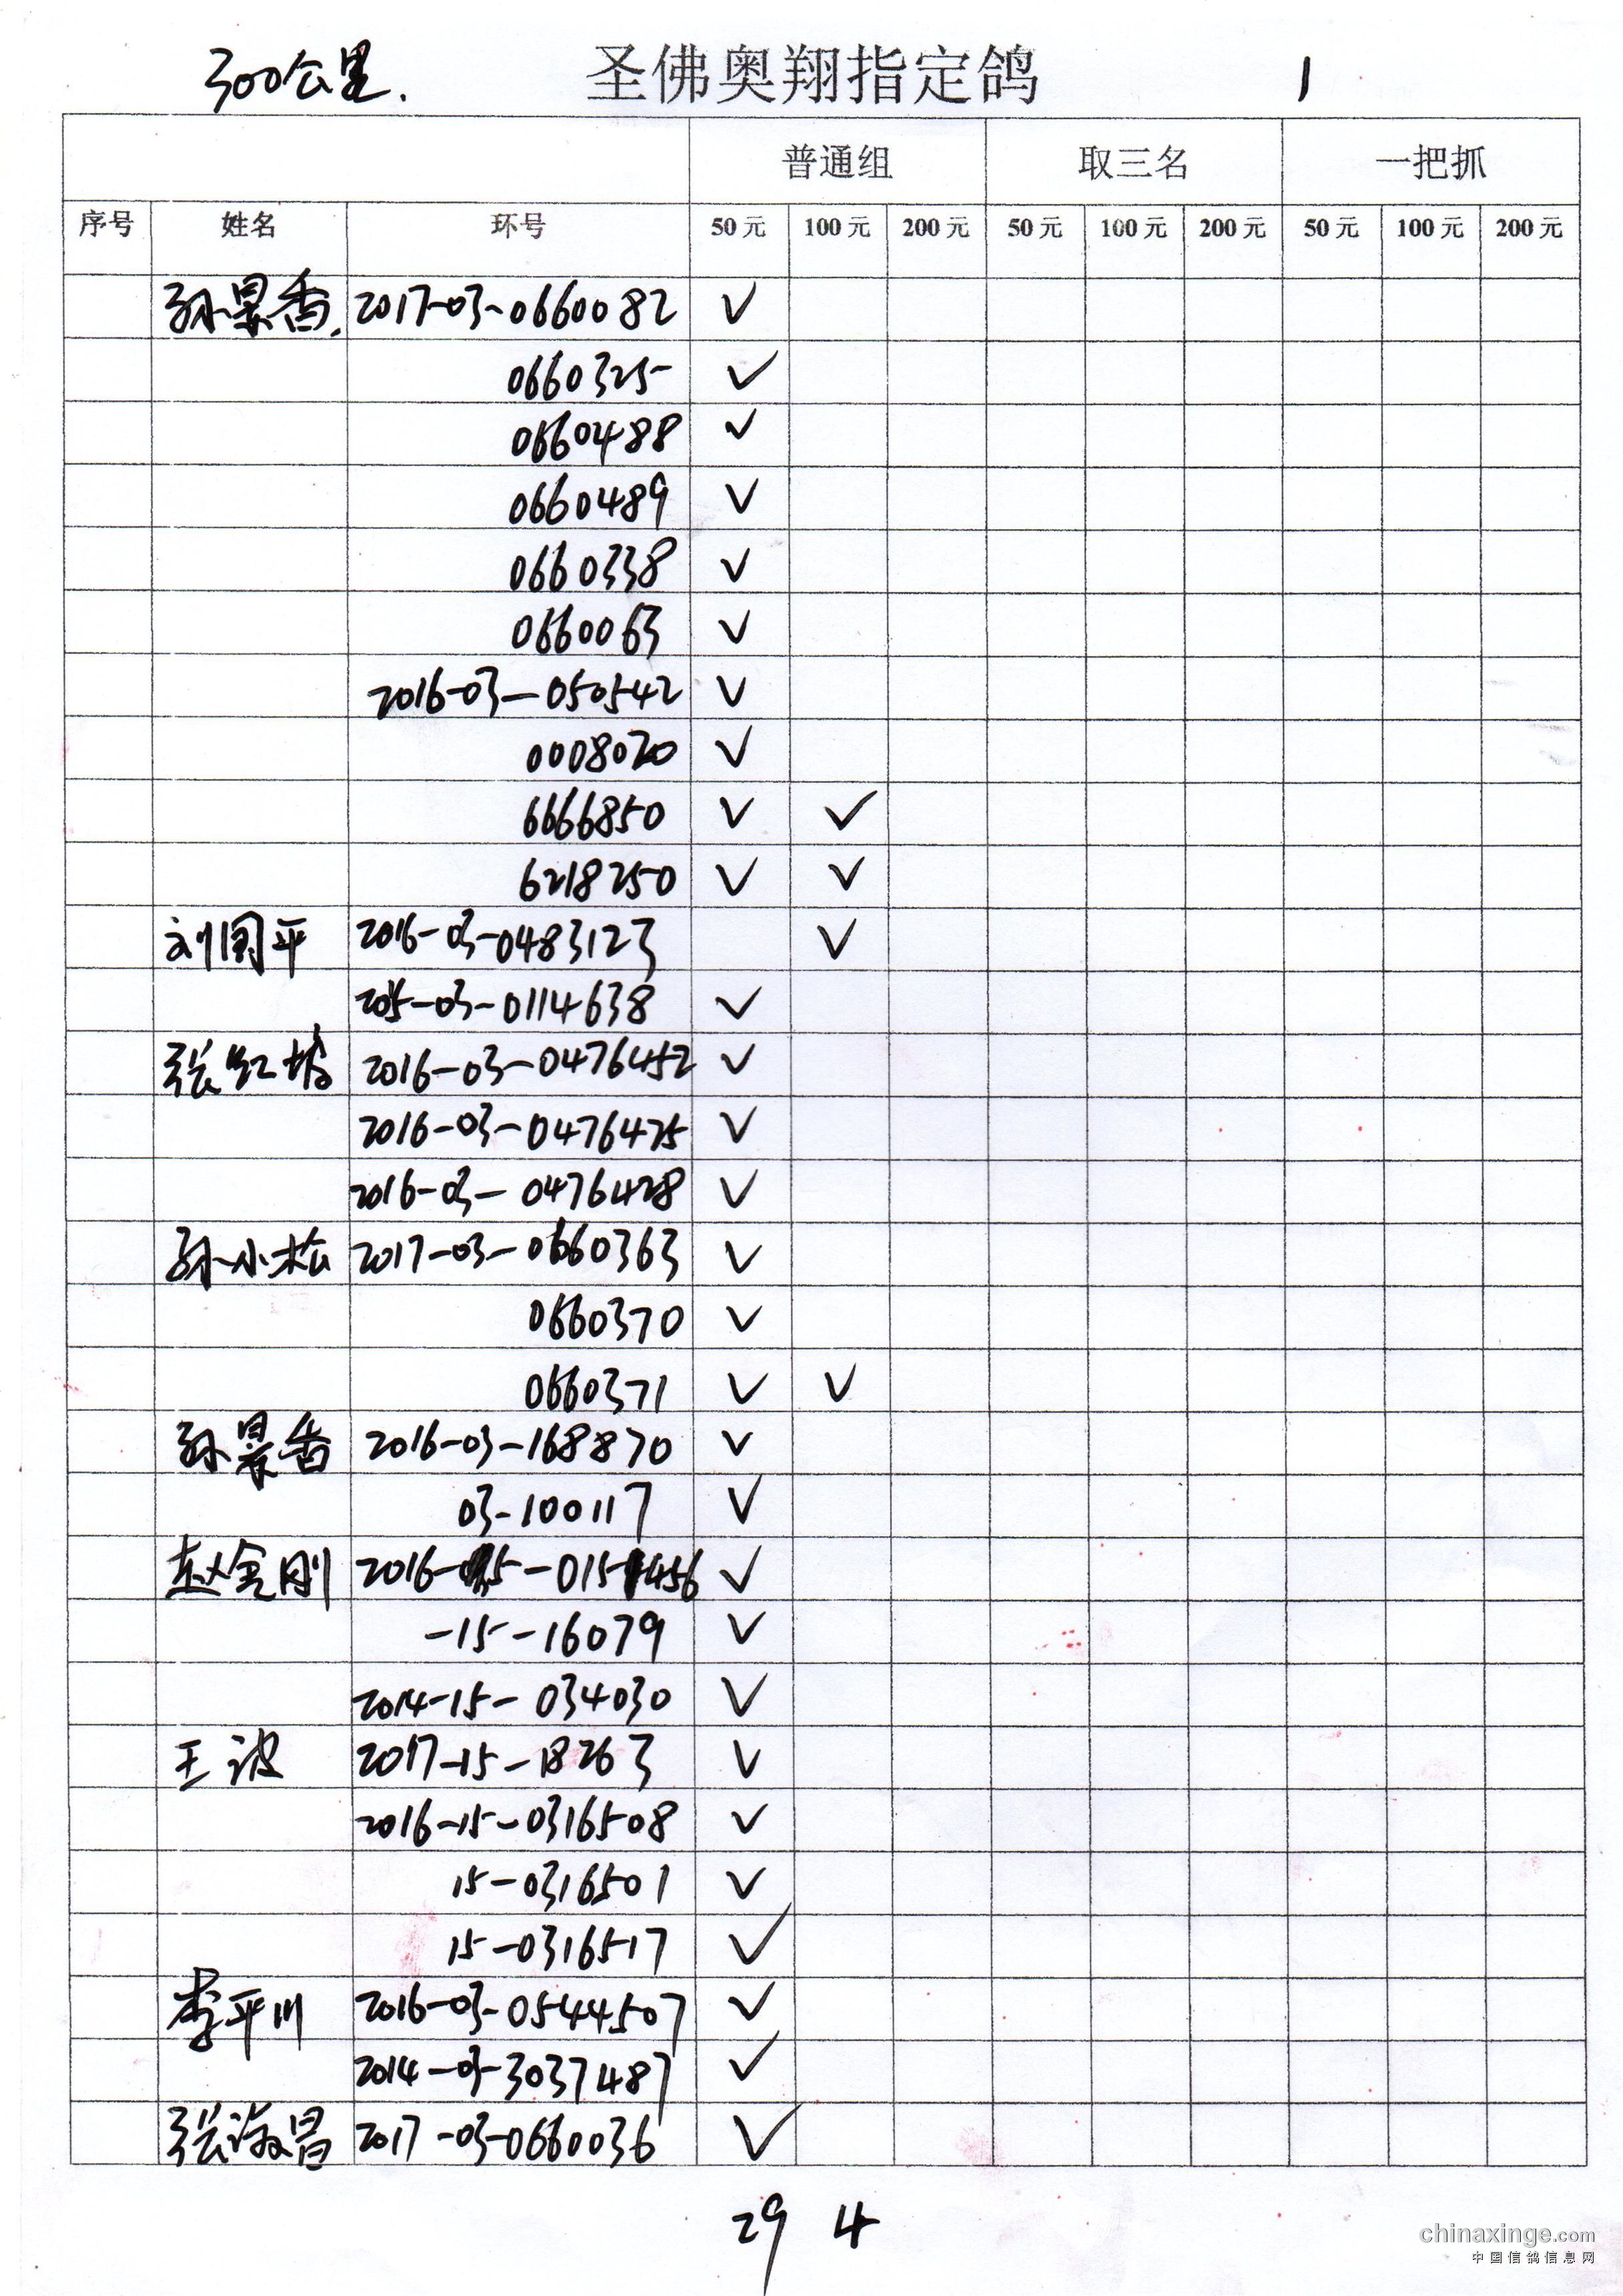 300公里. 圣佛奥翔指定鸽 1
普通组 取三名 一把抓
序号 姓名 环号 50元 100元 200元 50元 100元 200元 50元 100元 200元
孙景香. 2017-03-0660082 ✓
0660325 ✓
0660488 ✓
0660489 ✓
0660338 ✓
0660063 ✓
2016-03-050542 ✓
0008020 ✓
6666850 ✓ ✓
6218250 ✓ ✓
刘国平 2016-03-0483123 ✓
2015-03-0114638 ✓
张红坡 2016-03-0476452 ✓
2016-03-0476475 ✓
2016-03-0476428 ✓
孙小松 2017-03-0660363 ✓
0660370 ✓
0660371 ✓ ✓
孙景香 2016-03-168870 ✓
03-100117 ✓
赵金刚 2016-15-0151456 ✓
-15-16079 ✓
2014-15-034030 ✓
王波 2017-15-18263 ✓
2016-15-0316508 ✓
15-0316501 ✓
15-0316517 ✓
李平川 2016-03-0544507 ✓
2014-03-3037487 ✓
张淑昌 2017-03-0660036 ✓
29 4
chinaxinge.com
中国信鸽信息网